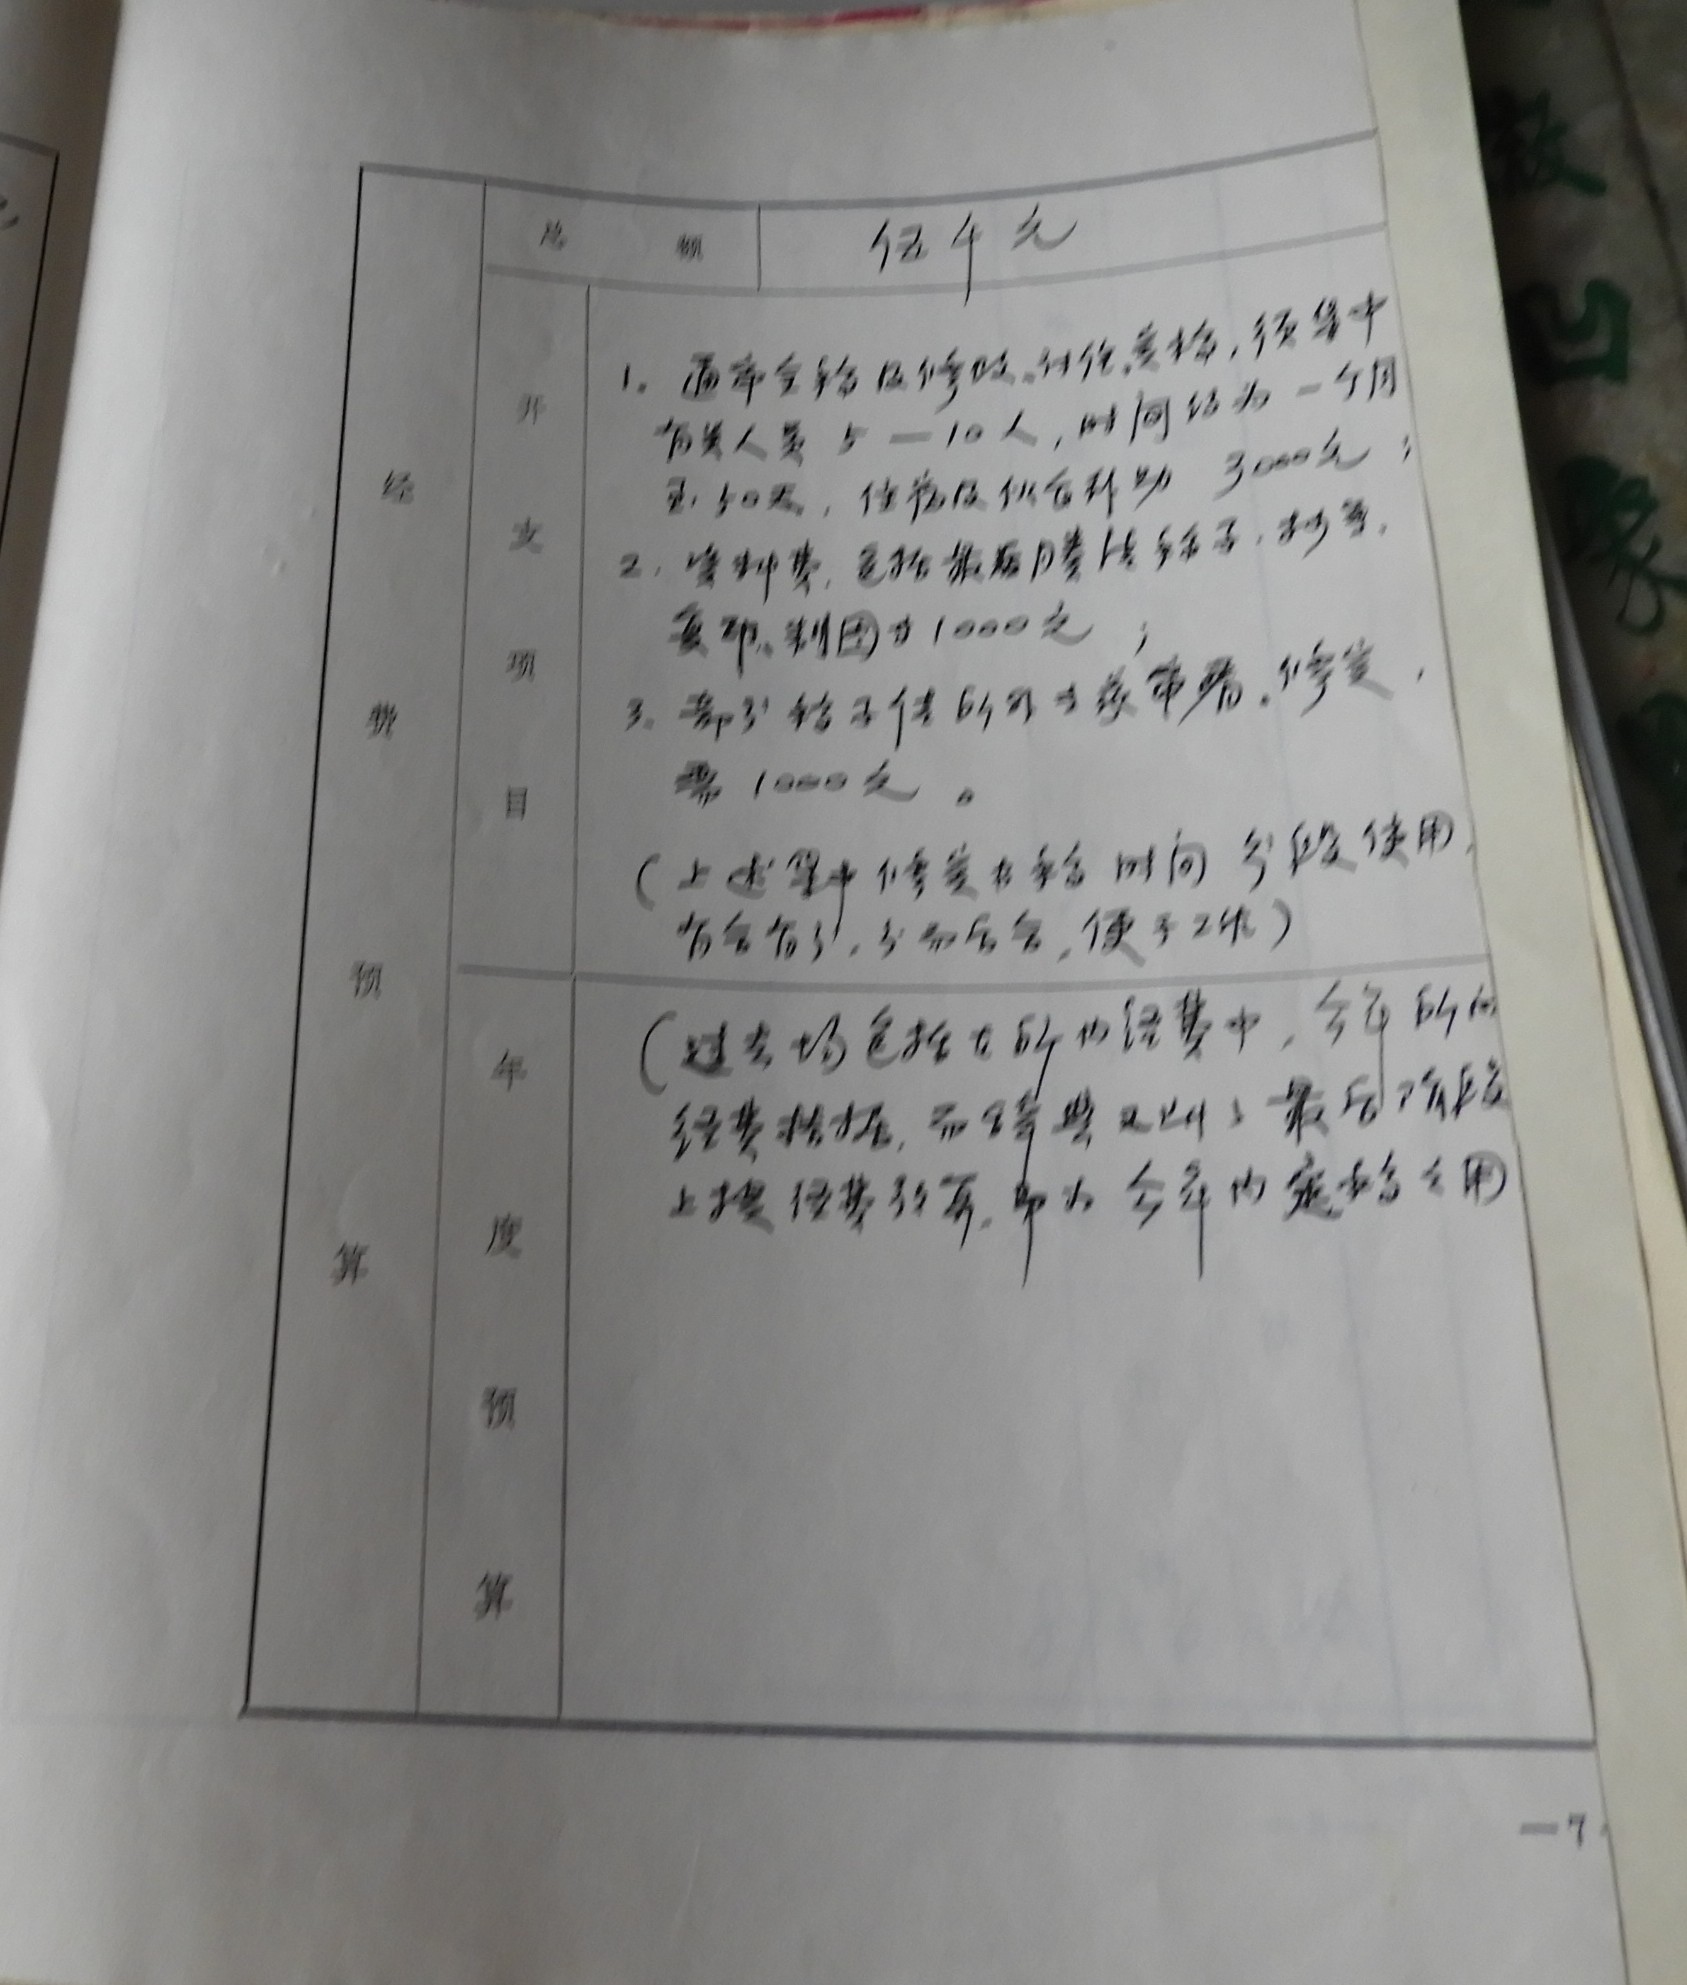 经费预算
总额
伍千元
开支项目
1. 通审全稿及修改、讨论、定稿，须集中
有关人员5—10人，时间约为一个月
至50天，住宿及伙食补助3000元；
2. 资料费，包括最后誊清稿子，抄写，
复印、制图为1000元；
3. 部分稿子请所外专家审稿、修定，
需1000元。
(上述集中修定书稿时间分段使用，
有合有分，分而后合，便于工作)
年度预算
(过去均包括在所内经费中，今年所内
经费拮据，而辞典又到了最后阶段
上报经费预算，即为今年内定稿之用
—7